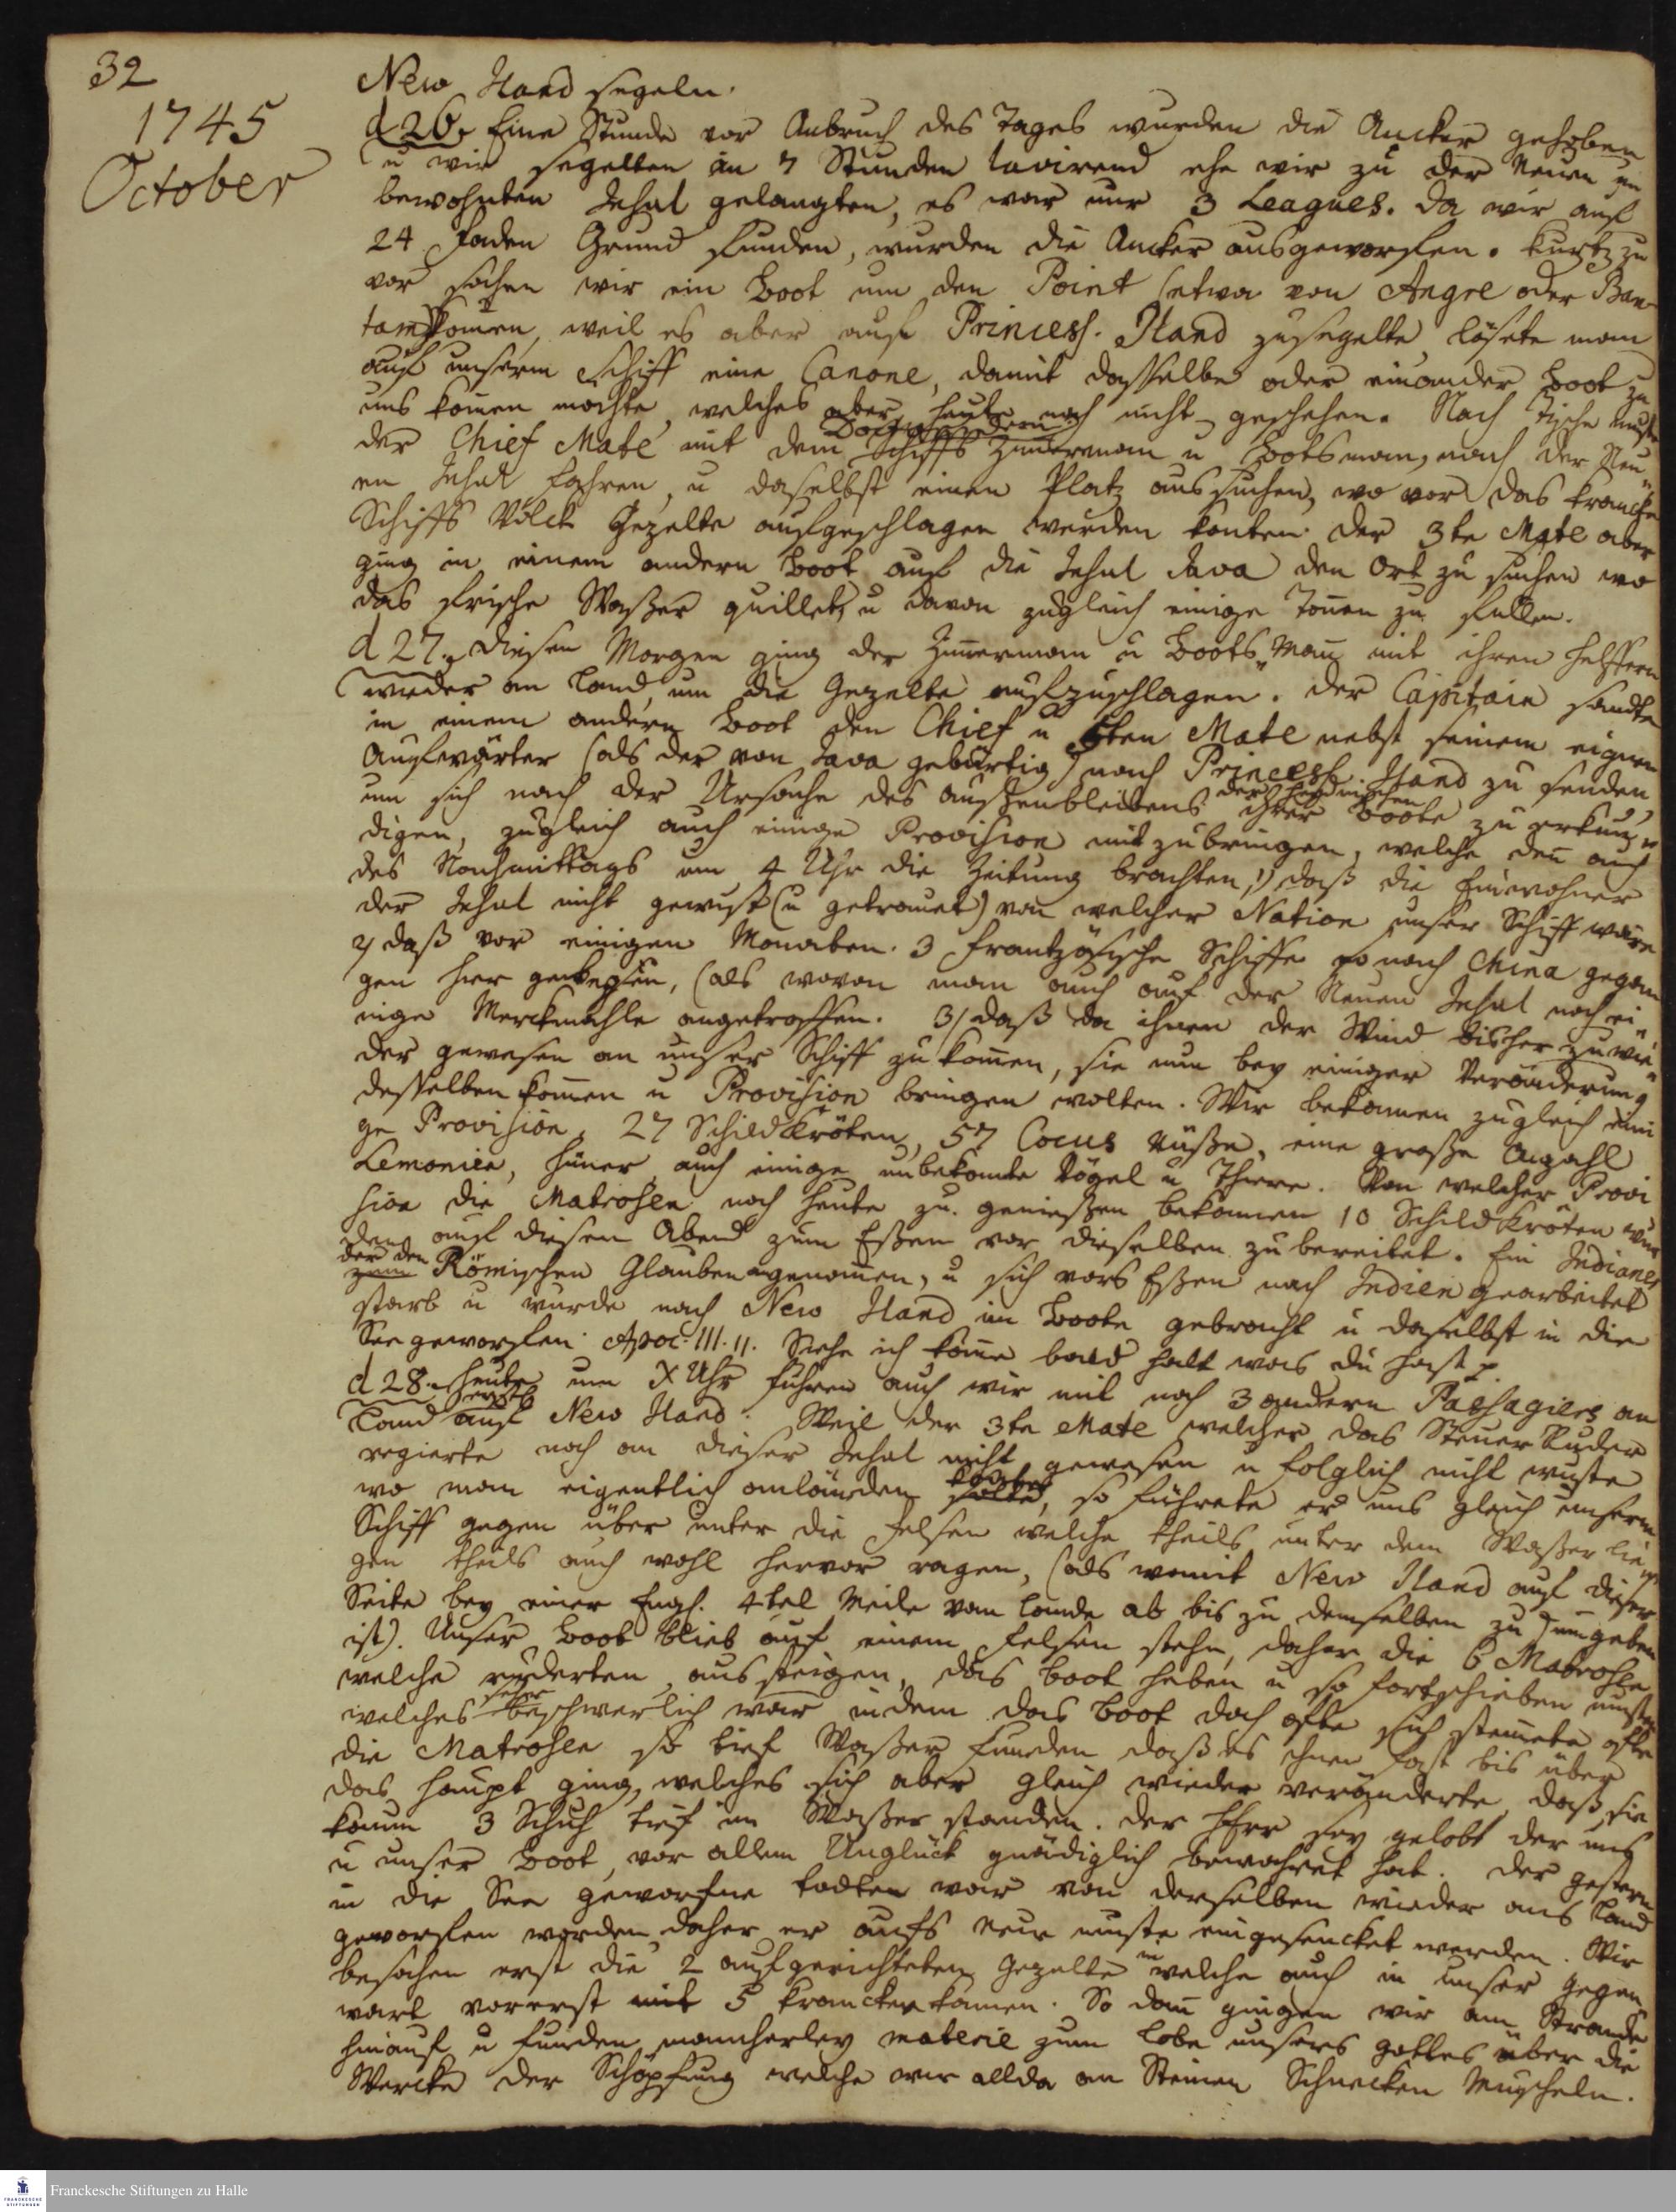 32
1745
October
New Iland segeln.
d 26. Eine Stunde vor Anbruch des Tages wurden die Ancker gehoben
u wir segelten in 7 Stunden lavirend ehe wir zu der Neuen un
bewohnten Insul gelangten, es war nur 3 Leagues. Da wir auf
24 Faden Grund funden, wurden die Ancker ausgeworfen. Kurtz zu
vor sahen wir ein Boot um den Point (etwa von Angre oder Ban-
tam) komen, weil es aber auf Princess. Iland zusegelte, lösete man
auf unserm Schiff eine Canone, damit dasselbe oder ein ander Boot zu
uns komen mochte, welches aber heute noch nicht geschehen. Nach Tische muste
der Chief Mate mit dem Schiffs Zimerman u Botsman, nach der Neu-
en Insul fahren, u daselbst einen Platz aussuchen, wo vor das krancke
Schiffs Volck Gezelte aufgeschlagen werden konten. Der 3te Mate aber
ging in einem andern Boot auf die Insul Java den Ort zu suchen wo
das frische Waßer quillet, u davon zugleich einige Tonen zu fullen.
d 27. Diesen Morgen ging der Zimerman u Boots Man mit ihren Helffern
wieder an Land, um die Gezelte aufzuschlagen. Der Capitain sandte
in einem andern Boot den Chief u 5ten Mate nebst seinem eignen
Aufwärter (als der von Java gebürtig) nach Princess. Iland zu senden
um sich nach der Ursache des Außenbleibens ihrer Boote zu erkun-
digen, zugleich auch einige Provision mitzubringen, welche den auch
des Nachmittags um 4 Uhr die Zeitung brachten, 1) daß die Einwohner
der Insul nicht gewust (u getrauet) von welcher Nation unser Schiff wäre
2) daß vor einigen Monaten 3 Frantzösische Schiffe so nach China gegan
gen hier gewesen, (als wovon man auch auf der Neuen Insul noch ei-
nige Merckmahle angetroffen. 3) daß da ihnen der Wind bisher zuwie-
der gewesen an unser Schiff zu komen, sie nun bey einiger Veränderung
desselben komen u Provision bringen wolten. Wir bekamen zugleich eini
ge Provision, 27 Schildkröten, 57 Cocus Nüße, eine große Anzahl
Lemonien, Hüner, auch einige unbekante Vögel u Thiere. Von welcher Provi
sion die Matrosen noch heute zu genießen bekamen 10 Schildkröten wur
den auf diesen Abend zum Eßen vor dieselben zubereitet. Ein Indianer
der den Römischen Glauben angenomen, u sich vors Eßen nach Indien gearbeitet
starb u wurde nach New Iland im Boote gebracht u daselbst in die
See geworfen. Apoc. III. 11. Siehe ich kome bald halt was du hast p.
d 28. Heute um X Uhr fuhren auch wir mit noch 3 andern Passagiers an
Land auf New Iland. Weil der 3te Mate welcher das Steuer Ruder
regierte noch an dieser Insul nicht gewesen u folglich nicht wuste
wo man eigentlich anländen konte, so führete er uns gleich unserm
Schiff gegen über unter die Felsen welche theils unter dem Waßer lie-
gen theils auch wohl hervor ragen, (als womit New Iland auf dieser
Seite bey einer Engl. 4tel Meile vom Lande ab bis zu demselben zu umgeben
ist). Unser Boot blieb auf einem Felsen stehn, daher die 6 Matrosen
welche ruderten aussteigen, das Boot heben u so fortschieben musten
welches sehr beschwerlich war indem das Boot doch ofte sich stemete ofte
die Matrosen so tief Waßer funden daß es ihnen fast bis über
das Haupt ging, welches sich aber gleich wieder veränderte, daß sie
kaum 3 Schuh tief im Waßer standen. Der HErr sey gelobt der uns
u unser Boot, vor allem Unglück gnädiglich bewahret hat. Der gestern
in die See geworfne Todte war von derselben wieder ans Land
geworfen worden, daher er aufs neue muste eingesencket werden. Wir
besahen erst die 2 aufgerichteten Gezelte in welche auch in unser Gegen
wart vorerst 5 Krancken kamen. So dan gingen wir am Strande
hinauf u funden mancherley materie zum Lobe unsers Gottes über die
Wercke der Schöpfung welche wir allda an Steinen Schnecken Muscheln.
Franckesche Stiftungen zu Halle